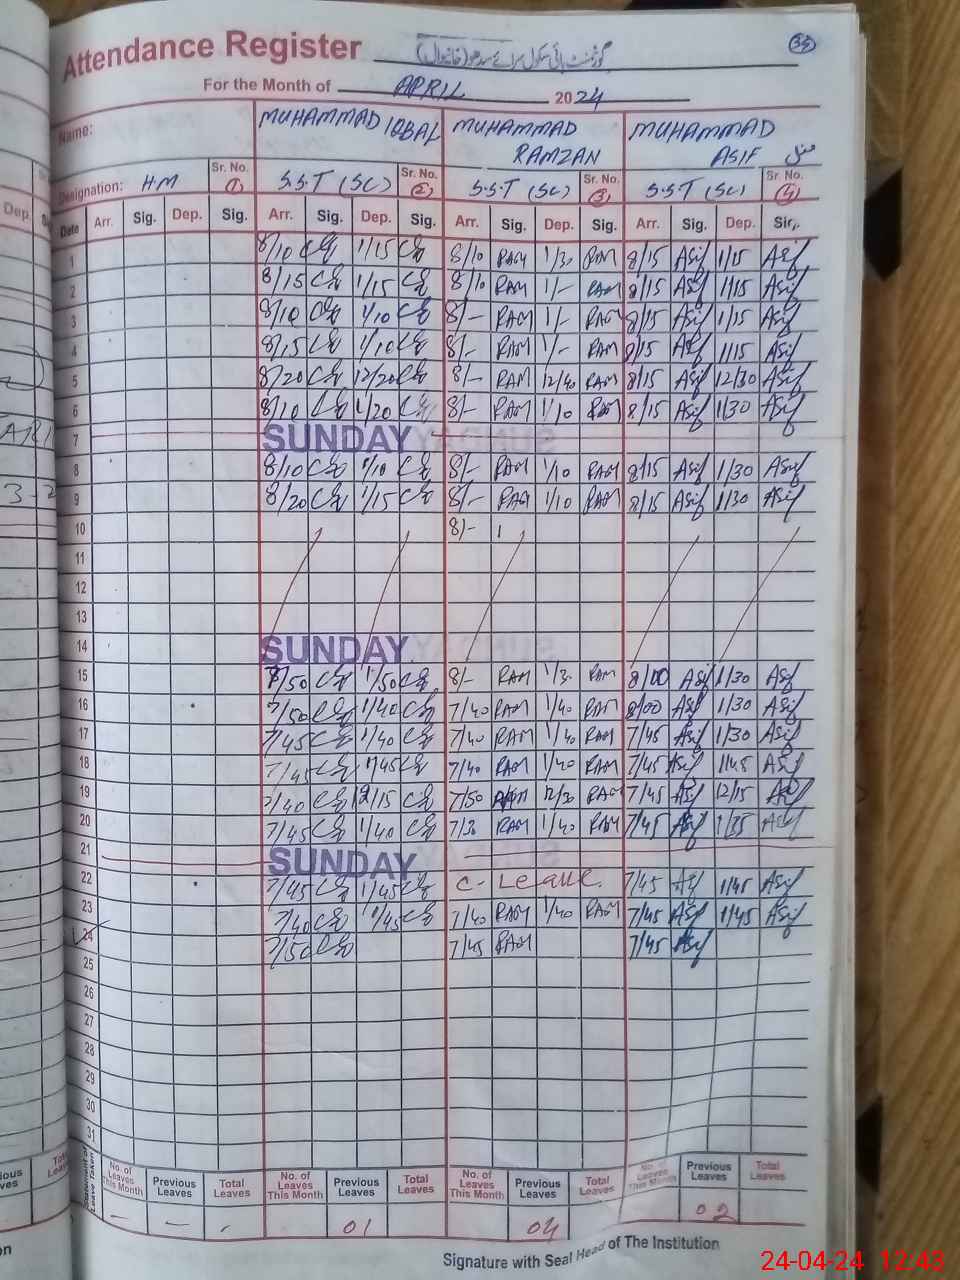 Attendance Register گورنمنٹ ہائی سکول سرائے سدھو (خانیوال) 35
For the Month of APRIL 2024
Name: MUHAMMAD IQBAL MUHAMMAD RAMZAN MUHAMMAD ASIF
Designation: H.M Sr. No. 1 S.S.T (SC) Sr. No. 2 S.S.T (SC) Sr. No. 3 S.S.T (SC) Sr. No. 4
Date Arr. Sig. Dep. Sig. Arr. Sig. Dep. Sig. Arr. Sig. Dep. Sig. Arr. Sig. Dep.
1 8/10 1/15 8/10 RAM 1/30 RAM 8/15 Asif 1/15 Asif
2 8/15 1/15 8/10 RAM 1/- RAM 8/15 Asif 1/15 Asif
3 8/10 1/10 8/- RAM 1/- RAM 8/15 Asif 1/15 Asif
4 8/15 1/10 8/- RAM 1/- RAM 8/15 Asif 1/15 Asif
5 8/20 12/20 8/- RAM 12/40 RAM 8/15 Asif 12/30 Asif
6 8/10 1/20 8/- RAM 1/10 RAM 8/15 Asif 1/30 Asif
7 SUNDAY
8 8/10 1/10 8/- RAM 1/10 RAM 8/15 Asif 1/30 Asif
9 8/20 1/15 8/- RAM 1/10 RAM 8/15 Asif 1/30 Asif
10 8/-
11
12
13
14 SUNDAY
15 7/50 1/50 8/- RAM 1/30 RAM 8/00 Asif 1/30 Asif
16 7/50 1/40 7/40 RAM 1/40 RAM 8/00 Asif 1/30 Asif
17 7/45 1/40 7/40 RAM 1/40 RAM 7/45 Asif 1/30 Asif
18 7/45 1/45 7/40 RAM 1/40 RAM 7/45 Asif 1/45 Asif
19 7/40 12/15 7/50 RAM 12/30 RAM 7/45 Asif 12/15 Asif
20 7/45 1/40 7/30 RAM 1/40 RAM 7/45 Asif 1/35 Asif
21 SUNDAY
22 7/45 1/45 C-Leave. 7/45 Asif 1/45 Asif
23 7/40 1/45 7/40 RAM 1/40 RAM 7/45 Asif 1/45 Asif
24 7/50 7/45 RAM 7/45 Asif
25
26
27
28
29
30
31
Statement of Leave Taken No. of Leaves This Month Previous Leaves Total Leaves No. of Leaves This Month Previous Leaves Total Leaves No. of Leaves This Month Previous Leaves Total Leaves No. of Leaves This Month Previous Leaves Total Leaves
- - 01 04 02
Signature with Seal Head of The Institution
24-04-24 12:43